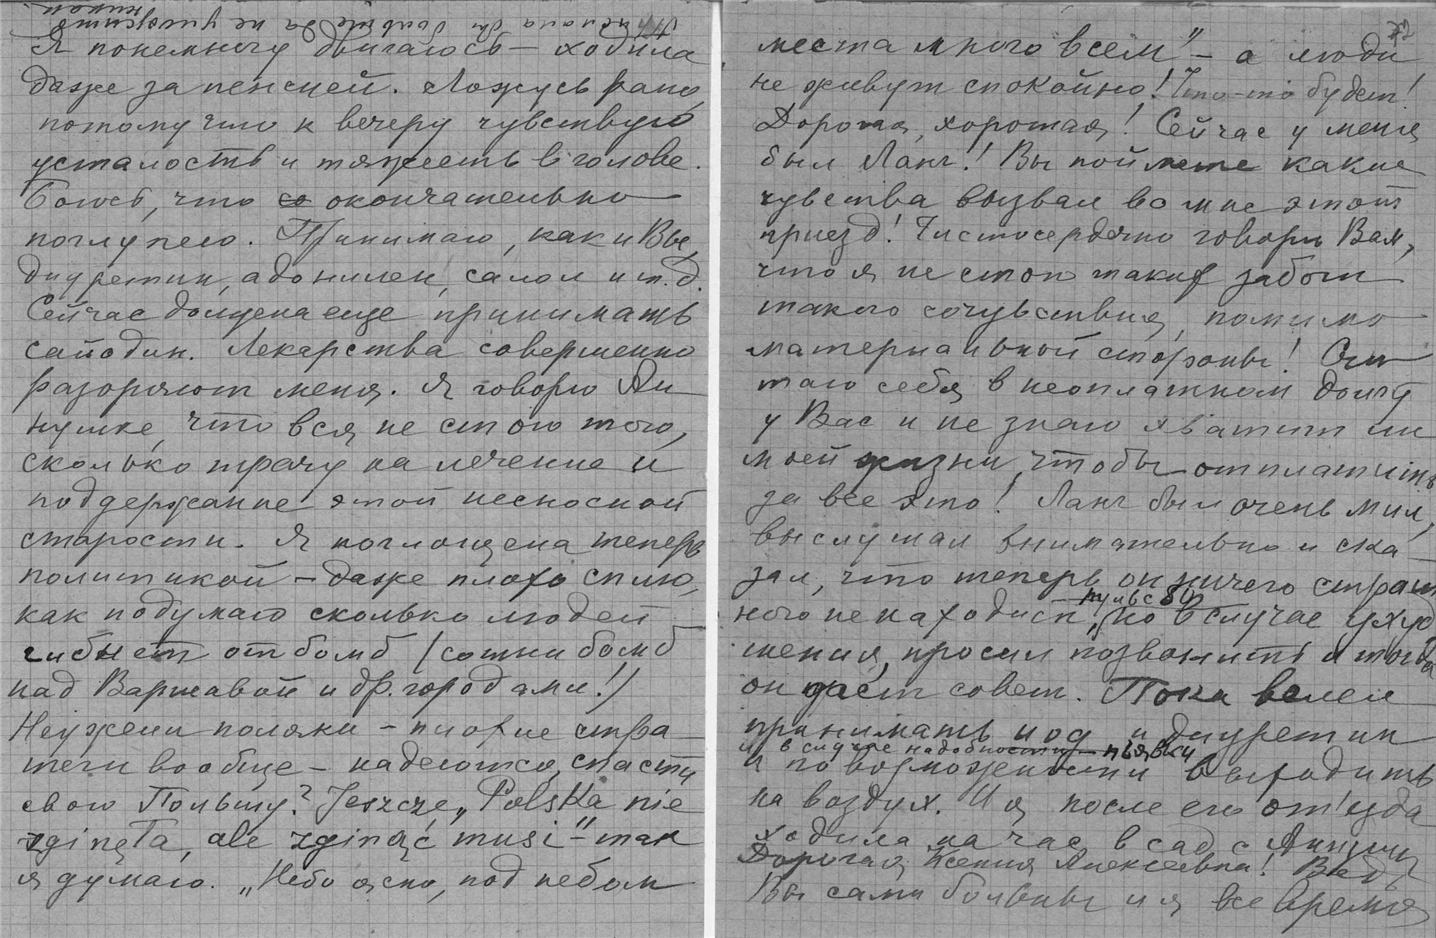 Я понемногу двигаюсь – ходила
даже за пенсией. Ложусь рано,
потому что к вечеру чувствую
усталость и тяжесть в голове.
Боюсь, что окончательно
поглупею. Принимаю, как и Вы,
диуретин, адонилен, салол и т.д.
Сейчас должна еще принимать
сайодин. Лекарства совершенно
разоряют меня. Я говорю Ан
нушке, что вся не стою того,
сколько трачу на лечение и
поддержание этой несносной
старости. Я поглощена теперь
политикой – даже плохо сплю,
как подумаю сколько людей
гибнет от бомб (сотни бомб
над Варшавой и др. городами!)
Неужели поляки – плохие стра
теги вообще – надеются спасти
свою Польшу? Jeszcze „Polska nie
zginęła, ale zginąć musi" – так
я думаю. „Небо ясно, под небом
72
места много всем" – а люди
не живут спокойно! Что-то будет!
Дорогая, хорошая! Сейчас у меня
был Ланг! Вы поймете какие
чувства вызвал во мне этот
приезд! Чистосердечно говорю Вам,
что я не стою таких забот
такого сочувствия, помимо
материальной стороны! Счи
таю себя в неоплатном долгу
у Вас и не знаю хватит ли
моей жизни, чтобы отплатить
за все это! Ланг был очень мил,
выслушал внимательно и ска
зал, что теперь он ничего страш
ного не находит, пульс 80, но в случае ухуд
шения, просил позвонить и тогда
он даст совет. Пока велел
принимать иод и диуретин
и в случае надобности – пьявки
и по возможности выходить
на воздух. И я после его отъезда
ходила на час в сад с
Дорогая Ксения Алексеевна! Ведь
Вы сами больны и я все время